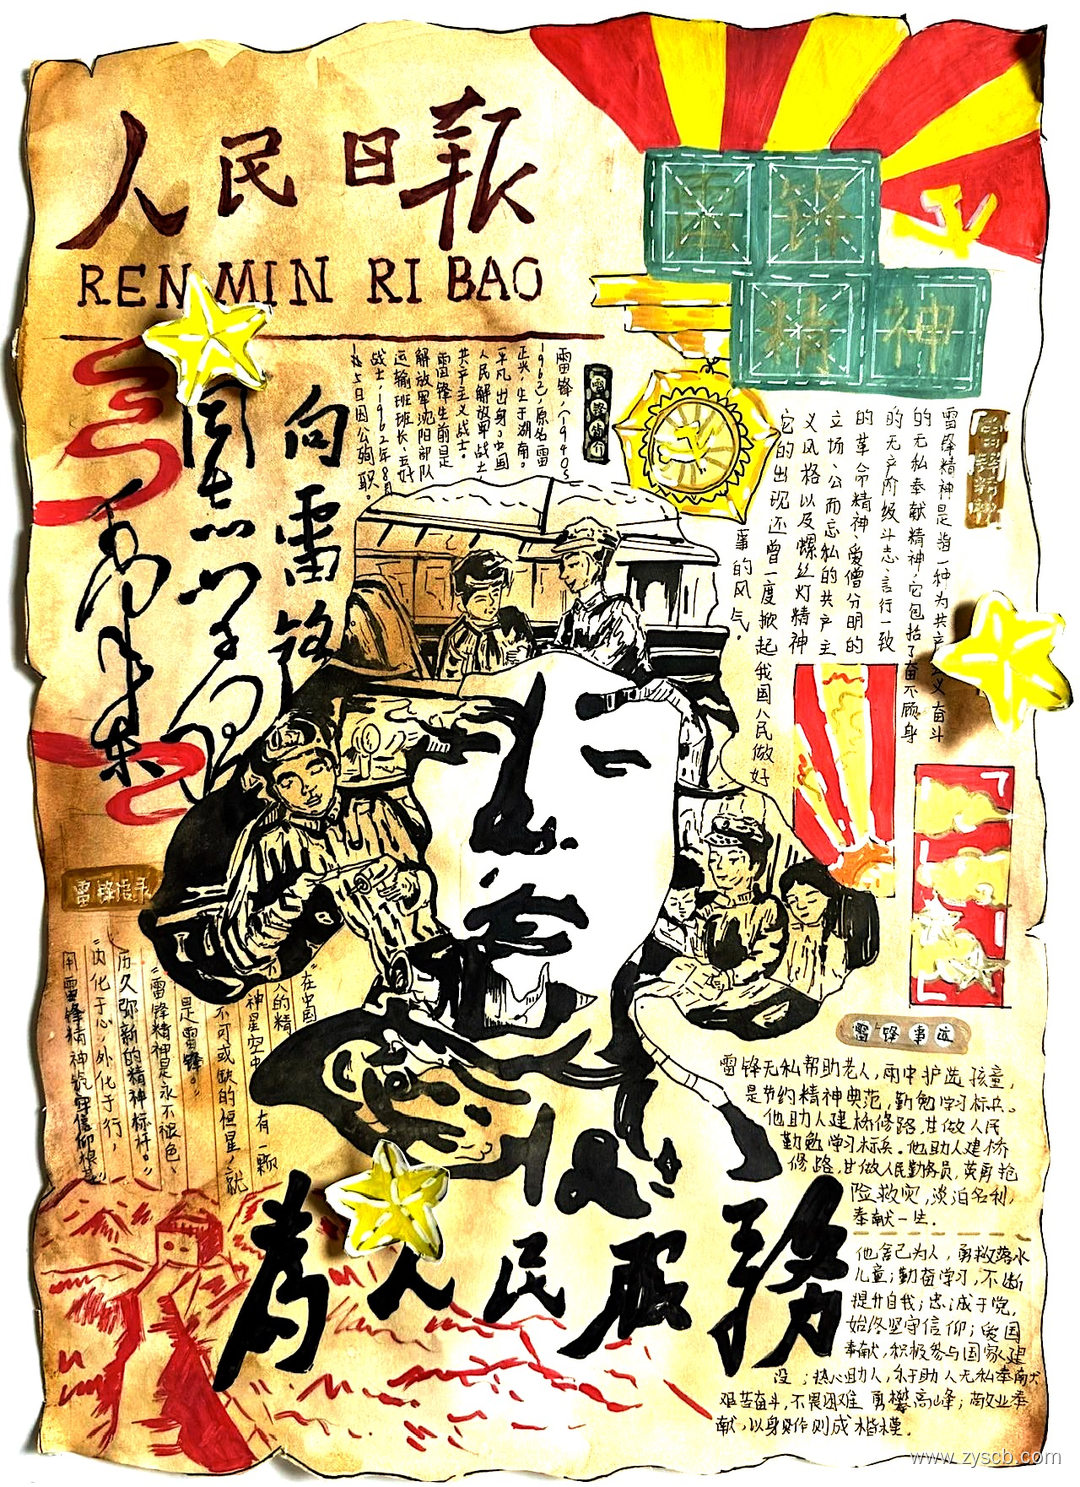 人民日报
REN MIN RI BAO
雷锋
精神
向雷锋
同志学习
毛泽东
雷锋简介
雷锋,(1940~
1962),原名雷
正兴,生于湖南。
平凡出身。中国
人民解放军战士,
共产主义战士。
雷锋生前是
解放军沈阳部队
运输班班长、五好
战士,1962年8月
15日因公殉职。
雷锋精神是指一种为共产主义奋斗
的无私奉献精神;它包括了奋不顾身
的无产阶级斗志、言行一致
的革命精神、爱憎分明的
立场、公而忘私的共产主
义风格以及螺丝钉精神
它的出现还曾一度掀起我国人民做好
事的风气。
雷锋语录
"在中国
人的精
神星空中 有一颗
不可或缺的恒星,就
是雷锋。"
"雷锋精神是永不褪色、
历久弥新的精神标杆。"
"内化于心,外化于行,
用雷锋精神筑牢信仰根基"
雷锋事迹
雷锋无私帮助老人,雨中护送孩童,
是节约精神典范,勤勉学习标兵。
他助人建桥修路,甘做人民
勤勉学习标兵。他助人建桥
修路,甘做人民勤务员,英勇抢
险救灾,淡泊名利,
奉献一生.
他舍己为人,勇救落水
儿童;勤奋学习,不断
提升自我;忠诚于党,
始终坚守信仰;爱国
奉献,积极参与国家建
设;热心助人,乐于助人无私奉献
艰苦奋斗,不畏困难 勇攀高峰;敬业奉
献,以身则作则成楷模.
为人民服務
www.zyscb.com